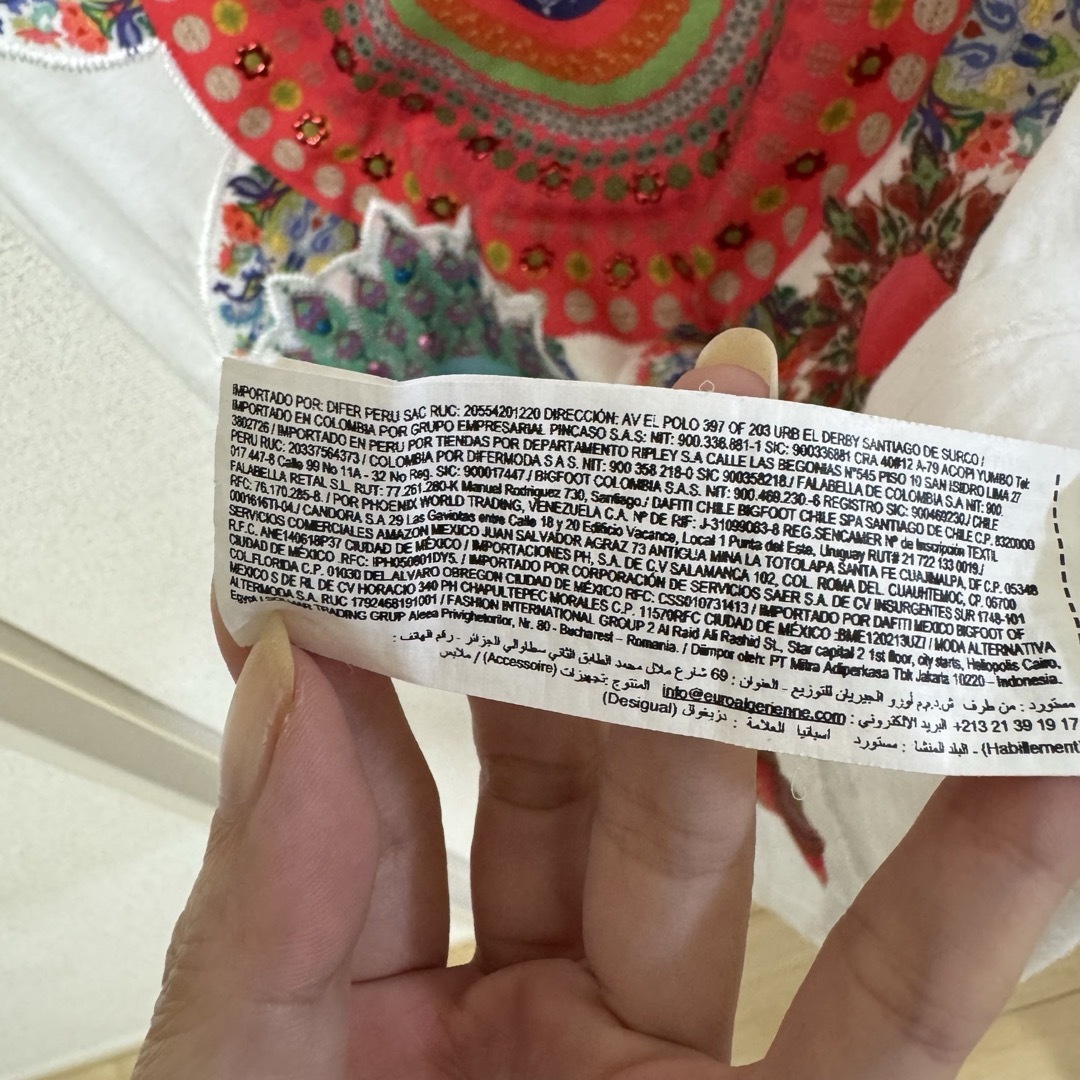 IMPORTADO POR: DIFER PERU SAC RUC: 20554201220 DIRECCIÓN: AV EL POLO 397 OF 203 URB EL DERBY SANTIAGO DE SURCO /
IMPORTADO EN COLOMBIA POR GRUPO EMPRESARIAL PINCASO S.A.S: NIT: 900.336.881-1 SIC: 900336881 CRA 40#12 A-79 ACOPI YUMBO Tel:
3802726 / IMPORTADO EN PERU POR TIENDAS POR DEPARTAMENTO RIPLEY S.A CALLE LAS BEGONIAS Nº545 PISO 10 SAN ISIDRO LIMA 27
PERU RUC: 20337564373 / COLOMBIA POR DIFERMODA S A S. NIT: 900 358 218-0 SIC 900358218 / FALABELLA DE COLOMBIA S.A NIT: 900.
017 447-8 Calle 99 No 11A - 32 No Reg. SIC: 900017447 / BIGFOOT COLOMBIA S.A.S. NIT: 900.469.230.-6 REGISTRO SIC: 900469230 / CHILE
FALABELLA RETAL S.L. RUT: 77.261.280-K Manuel Rodriguez 730, Santiago / DAFITI CHILE BIGFOOT CHILE SPA SANTIAGO DE CHILE C.P. 8320000
RFC: 76.170.285-8. / POR PHOENIX WORLD TRADING, VENEZUELA C.A. Nº DE RIF: J-31099083-8 REG.SENCAMER Nº de Inscripción TEXTIL
/ CANDORA S.A 29 Las Gaviotas entre Calle 18 y 20 Edificio Vacance, Local 1 Punta del Este, Uruguay RUT# 21 722 133 0019 /
SERVICIOS COMERCIALES AMAZON MEXICO JUAN SALVADOR AGRAZ 73 ANTIGUA MINA LA TOTOLAPA SANTA FE CUAJIMALPA, DF C.P. 05348
R.F.C. ANE140618P37 CIUDAD DE MÉXICO / IMPORTACIONES PH, S.A. DE C.V SALAMANCA 102, COL. ROMA DEL. CUAUHTEMOC, CP. 06700
CIUDAD DE MÉXICO .RFC: IPH050801DY5. / IMPORTADO POR CORPORACIÓN DE SERVICIOS SAER S.A. DE CV INSURGENTES SUR 1748-101
COL.FLORIDA C.P. 01030 DEL.ALVARO OBREGON CIUDAD DE MÉXICO RFC: CSS010731413 / IMPORTADO POR DAFITI MEXICO BIGFOOT OF
MEXICO S DE RL DE CV HORACIO 340 PH CHAPULTEPEC MORALES C.P. 11570RFC CIUDAD DE MÉXICO :BME120213UZ7 / MODA ALTERNATIVA
ALTERMODA S.A. RUC 1792468191001 / FASHION INTERNATIONAL GROUP 2 Al Raid Ali Rashid St., Star capital 2 1st floor, city starts, Heliopolis Cairo,
Egypt / TRADING GRUP Aleea Privighetorilor, Nr. 80 - Bucharest – Romania. / Diimpor oleh: PT Mitra Adiperkasa Tbk Jakarta 10220 – Indonesia.
مستورد : من طرف ش.ذ.م.م أورو الجيريان للتوزيع - العنوان : 69 شارع ملال محمد الطابق الثاني سطاوالي الجزائر - رقم الهاتف :
+213 21 39 19 17 البريد الالكتروني : info@euroalgerienne.com المنتوج :تجهيزات (Accessoire) / ملابس
(Habillement) - البلد المنشأ : مستورد اسبانيا العلامة : دزيغوال (Desigual)